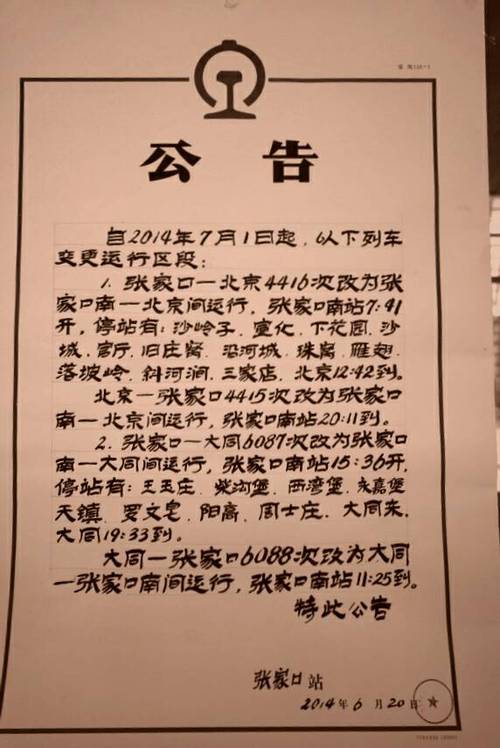 公告
自2014年7月1日起，以下列车
变更运行区段：
1. 张家口—北京4416次改为张
家口南—北京间运行，张家口南站7:41
开，停站有：沙岭子、宣化、下花园、沙
城、官厅、旧庄窝、沿河城、珠窝、雁翅、
落坡岭、斜河涧、三家店、北京12:42到。
北京—张家口4415次改为张家口
南—北京间运行，张家口南站20:11到。
2. 张家口—大同6087次改为张家口
南—大同间运行，张家口南站15:36开，
停站有：王玉庄、柴沟堡、西湾堡、永嘉堡
天镇、罗文皂、阳高、周士庄、大同东、
大同19:33到。
大同—张家口6088次改为大同
—张家口南间运行，张家口南站11:25到。
特此公告
张家口站
2014年6月20日